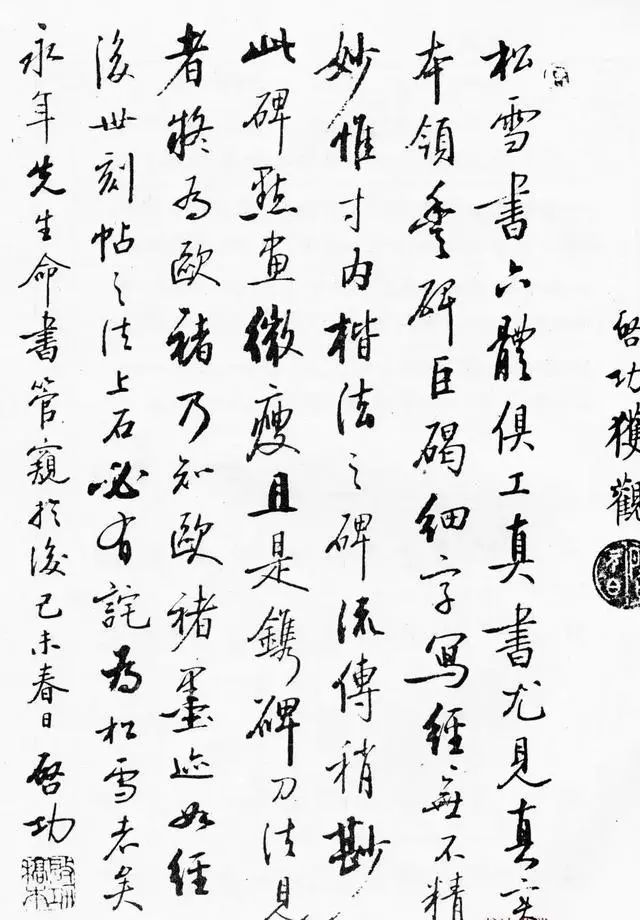 啓功獲觀
松雪書六體俱工真書尤見真實
本領豐碑巨碣細字寫經無不精
妙惟寸內楷法之碑流傳稍尠
此碑點畫微瘦且是鐫碑刀法見
者疑為歐褚乃知歐褚墨迹如經
後世刻帖之法上石必有詫為松雪者矣
永年先生命書管窺於後己未春日啓功